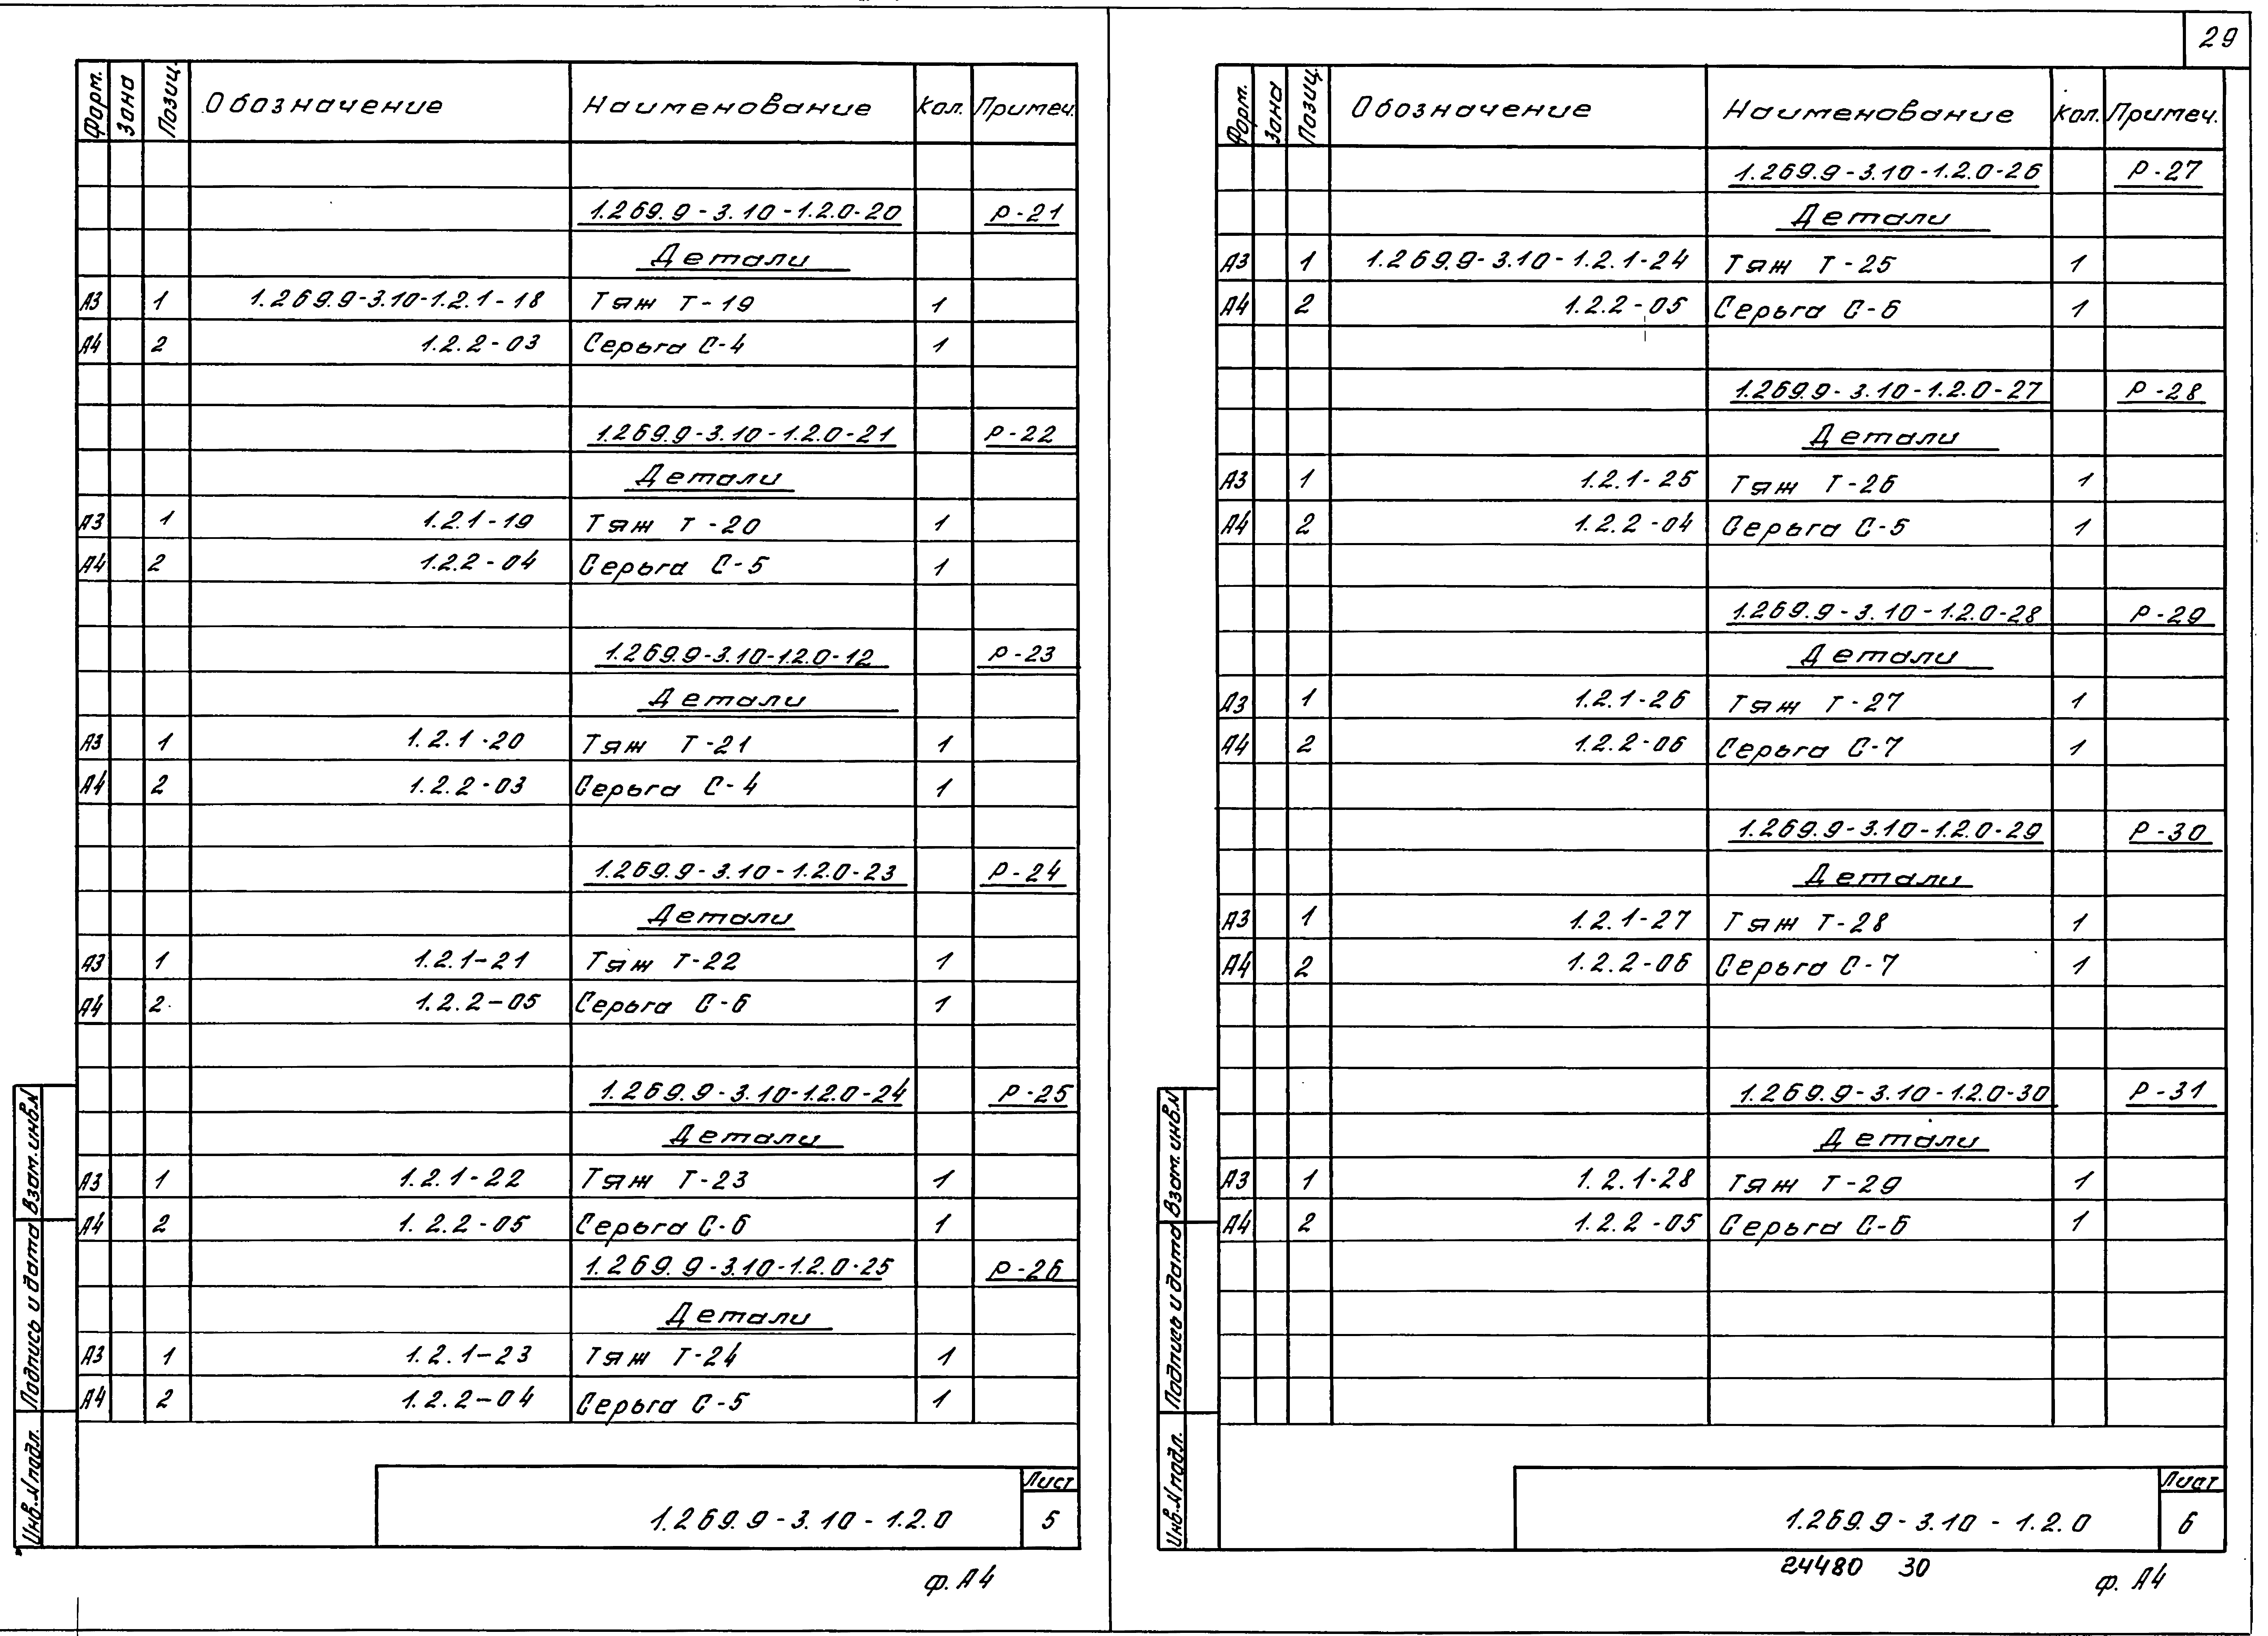 29
Форм. Зона Позиц. Обозначение Наименование Кол. Примеч.
1.269.9-3.10-1.2.0-20 Р-21
Детали
А3 1 1.269.9-3.10-1.2.1-18 Тяж Т-19 1
А4 2 1.2.2-03 Серьга С-4 1
1.269.9-3.10-1.2.0-21 Р-22
Детали
А3 1 1.2.1-19 Тяж Т-20 1
А4 2 1.2.2-04 Серьга С-5 1
1.269.9-3.10-1.2.0-12 Р-23
Детали
А3 1 1.2.1-20 Тяж Т-21 1
А4 2 1.2.2-03 Серьга С-4 1
1.269.9-3.10-1.2.0-23 Р-24
Детали
А3 1 1.2.1-21 Тяж Т-22 1
А4 2 1.2.2-05 Серьга С-6 1
1.269.9-3.10-1.2.0-24 Р-25
Детали
А3 1 1.2.1-22 Тяж Т-23 1
А4 2 1.2.2-05 Серьга С-6 1
1.269.9-3.10-1.2.0-25 Р-26
Детали
А3 1 1.2.1-23 Тяж Т-24 1
А4 2 1.2.2-04 Серьга С-5 1
Инв.N подл. Подпись и дата Взам.инв.N
1.269.9-3.10-1.2.0 Лист
5
ф. А4
Форм. Зона Позиц. Обозначение Наименование Кол. Примеч.
1.269.9-3.10-1.2.0-26 Р-27
Детали
А3 1 1.269.9-3.10-1.2.1-24 Тяж Т-25 1
А4 2 1.2.2-05 Серьга С-6 1
1.269.9-3.10-1.2.0-27 Р-28
Детали
А3 1 1.2.1-25 Тяж Т-26 1
А4 2 1.2.2-04 Серьга С-5 1
1.269.9-3.10-1.2.0-28 Р-29
Детали
А3 1 1.2.1-26 Тяж Т-27 1
А4 2 1.2.2-06 Серьга С-7 1
1.269.9-3.10-1.2.0-29 Р-30
Детали
А3 1 1.2.1-27 Тяж Т-28 1
А4 2 1.2.2-06 Серьга С-7 1
1.269.9-3.10-1.2.0-30 Р-31
Детали
А3 1 1.2.1-28 Тяж Т-29 1
А4 2 1.2.2-05 Серьга С-6 1
Инв.N подл. Подпись и дата Взам.инв.N
1.269.9-3.10-1.2.0 Лист
6
24480 30
ф. А4